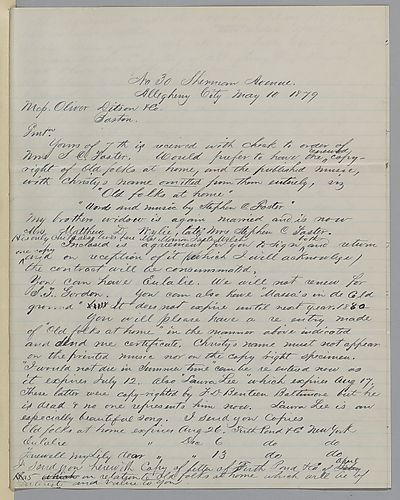 No 30 Sherman Avenue.
Allegheny City May 10 1879
Oliver Ditson & Co
Boston.
Gentn
Yours of 7th is received with check to order of
Mrs S. C. Foster. Would prefer to have the renewed copy-
right of Old folks at home, and the published music,
with Christy's name omitted from them entirely, viz
"Old folks at home"
"Words and music by Stephen C. Foster"
My brothers widow is again married and is now
Mrs. Matthew D. Wiley, late Mrs Stephen C. Foster.
His only child
Inclosed is agreement for you to sign and return
one copy
and on reception of it (which I will acknowledge)
the contract will be consummated.
You can have Eulalie. We will not renew for
S. T. Gordon. You can also have Massa's in de Cold
ground" It does not expire until next year. 1880
You will please have a re entry made
of "Old folks at home" in the manner above indicated
and send me certificate. Christy's name must not appear
on the printed music nor on the copy right specimen.
"I would not die in Summer time" can be re entered now as
it expires July 12. Also Laura Lee which expires Aug 17,
These latter were copy-righted by F. D. Benteen Baltimore but he
is dead & no one represents him now. Laura Lee is an
especially beautiful song. I send you Copies
Old folks at home expires Aug 26. Firth Pond & Co New York
Eulalie " Dec 6 do do
Farewell my Lily dear " " 13 do do
I send you herewith Copy of letter of Firth Pond & Co of
in relation to Old folks at home which will be of
interest and value to you